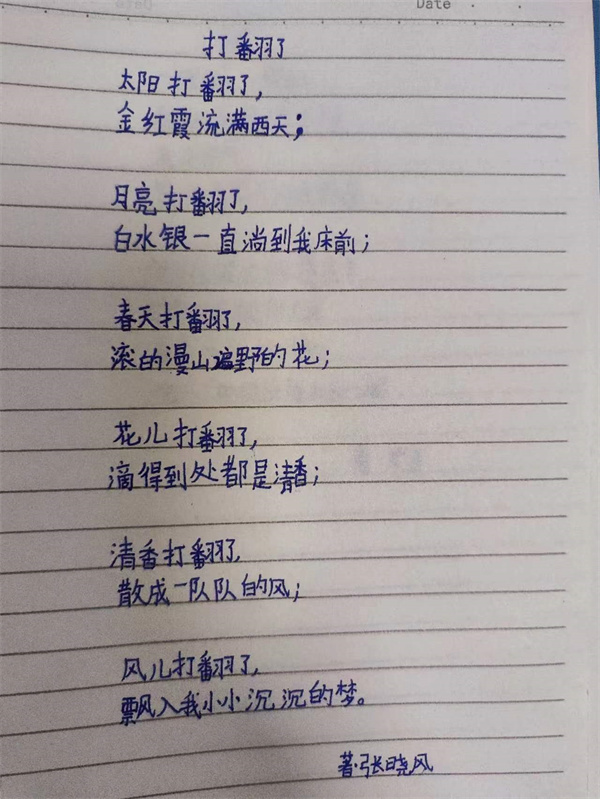 Date
打翻了
太阳打翻了,
金红霞流满西天;
月亮打翻了,
白水银一直淌到我床前;
春天打翻了,
滚的漫山遍野的花;
花儿打翻了,
滴得到处都是清香;
清香打翻了,
散成一队队的风;
风儿打翻了,
飘入我小小沉沉的梦。
著·张晓风